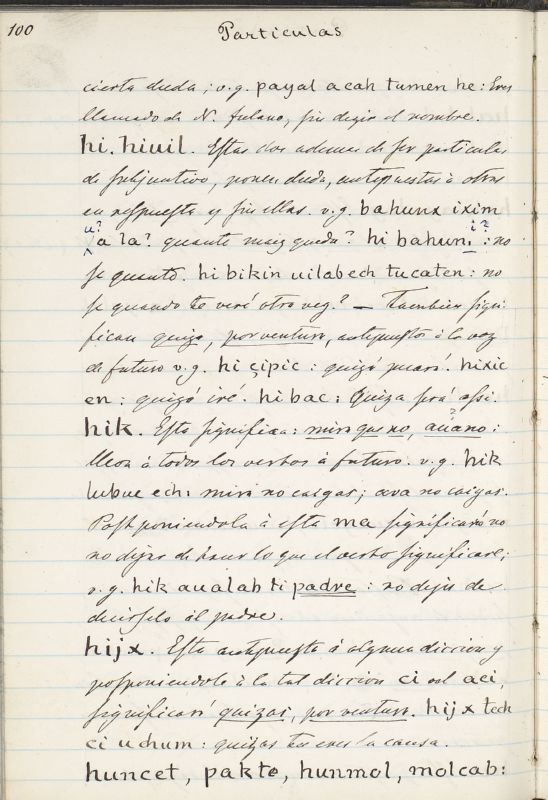 100 Particulas
cierta duda; v.g. payal a cah tumen he: Eres
llamado de N. fulano, sin dezir el nombre.
hi. hiuil. Estas dos ademas de ser particulas
de subjuntivo, ponen duda, antepuestas à otras
en respuesta y sin ellas. v.g. bahunx ixim
u? i?
a la? quanto maiz queda? hi bahun: no
se quanto. hi bikin uilabech tu caten: no
se quando te veré otra vez? — Tambien signi-
fican quiza, por ventura, antepuestas à la voz
de futuro v.g. hi çipic: quizá pecará. hi xic
en: quizá iré. hi bac: Quiza será assi.
?
hik. Esta significa: mira que no, auano:
llega à todos los verbos à futuro. v.g. hik
lubuc ech: mira no caigas; ava no caigas.
Postponiendola à esta ma significará no
no dejes de hacer lo que el verbo significare;
v.g. hik aualab ti padre: no dejes de
decirselo al padre.
hijx. Esta antepuesta à alguna diccion y
posponiendole à la tal diccion ci vel aci,
significará quizas, por ventura. hijx tech
ci u chum: quizas tu eres la causa.
huncet, pakte, hunmol, molcab: